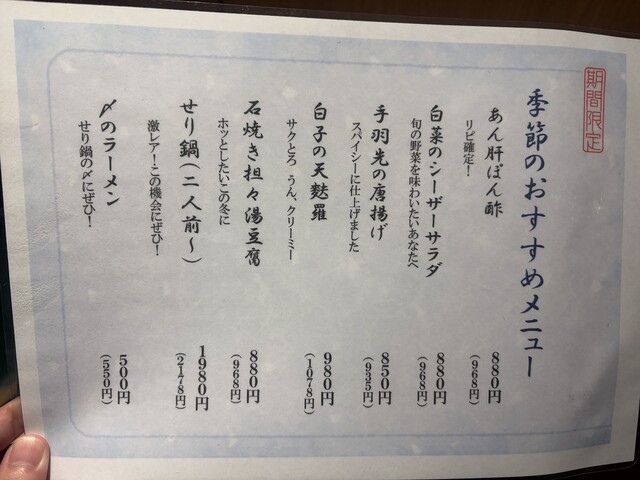 期間限定
季節のおすすめメニュー
あん肝ぽん酢
リピ確定！
880円
(968円)
白菜のシーザーサラダ
旬の野菜を味わいたいあなたへ
880円
(968円)
手羽先の唐揚げ
スパイシーに仕上げました
850円
(935円)
白子の天麩羅
サクとろ うん、クリーミー
980円
(1078円)
石焼き担々湯豆腐
ホッとしたいこの冬に
880円
(968円)
せり鍋(二人前〜)
激レア！この機会にぜひ！
1980円
(2178円)
〆のラーメン
せり鍋の〆にぜひ！
500円
(550円)